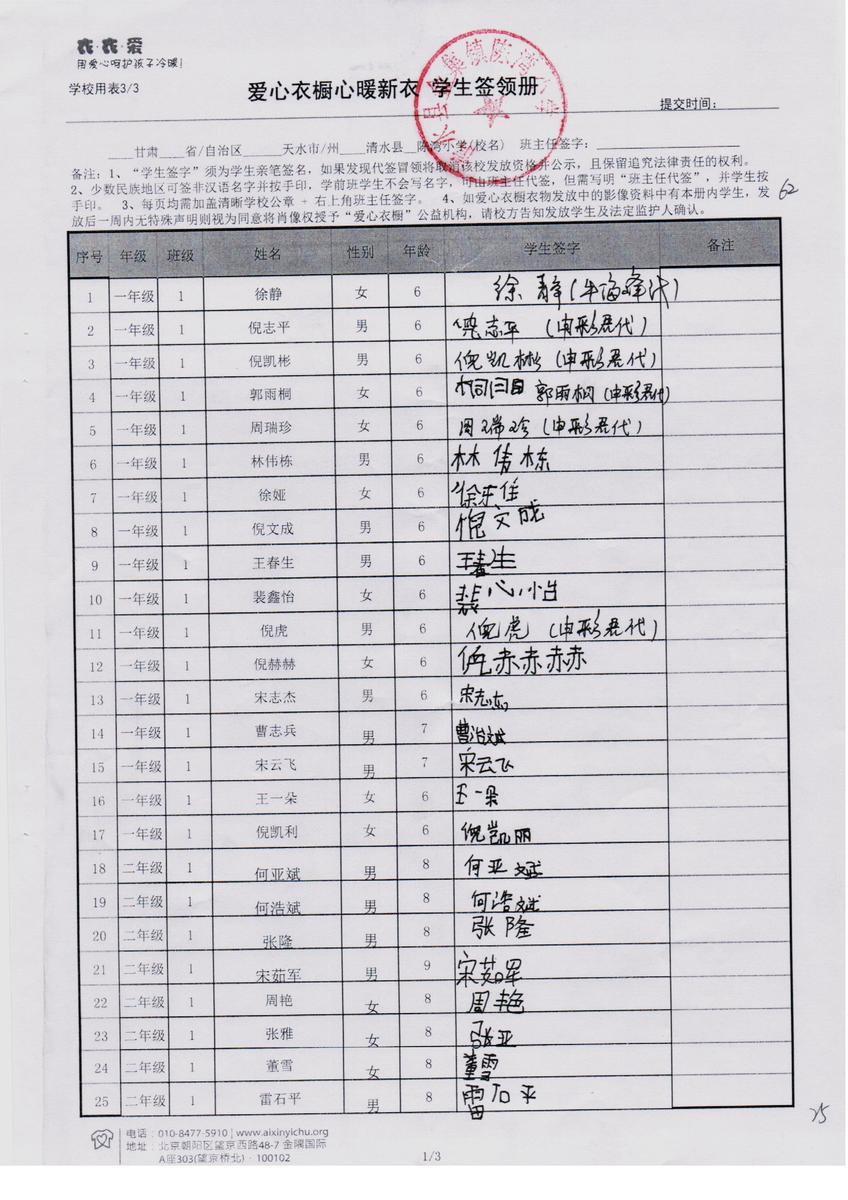 衣·衣·爱
用爱心呵护孩子冷暖!
学校用表3/3
爱心衣橱心暖新衣 学生签领册
提交时间:
甘肃 省/自治区 天水市/州 清水县 陈湾小学(校名) 班主任签字:
备注: 1、“学生签字”须为学生亲笔签名，如果发现代签冒领将取消该校发放资格并公示，且保留追究法律责任的权利。
2、少数民族地区可签非汉语名字并按手印，学前班学生不会写名字，可由班主任代签，但需写明“班主任代签”，并学生按
手印。 3、每页均需加盖清晰学校公章 + 右上角班主任签字。 4、如爱心衣橱衣物发放中的影像资料中有本册内学生，发
放后一周内无特殊声明则视为同意将肖像权授予“爱心衣橱”公益机构，请校方告知发放学生及法定监护人确认。
62
序号 年级 班级 姓名 性别 年龄 学生签字 备注
1 一年级 1 徐静 女 6 徐静
2 一年级 1 倪志平 男 6 倪志平（申彩君代）
3 一年级 1 倪凯彬 男 6 倪凯彬（申彩君代）
4 一年级 1 郭雨桐 女 6 郭雨桐（申彩君代）
5 一年级 1 周瑞珍 女 6 周瑞珍（申彩君代）
6 一年级 1 林伟栋 男 6 林伟栋
7 一年级 1 徐娅 女 6 徐
8 一年级 1 倪文成 男 6 倪文成
9 一年级 1 王春生 男 6 王春生
10 一年级 1 裴鑫怡 女 6 裴心怡
11 一年级 1 倪虎 男 6 倪虎（申彩君代）
12 一年级 1 倪赫赫 女 6 倪赫赫
13 一年级 1 宋志杰 男 6 宋志杰
14 一年级 1 曹志兵 男 7 曹治斌
15 一年级 1 宋云飞 男 7 宋云飞
16 一年级 1 王一朵 女 6 王一朵
17 一年级 1 倪凯利 女 6 倪凯丽
18 二年级 1 何亚斌 男 8 何亚斌
19 二年级 1 何浩斌 男 8 何浩斌
20 二年级 1 张隆 男 8 张隆
21 二年级 1 宋茹军 男 9 宋茹军
22 二年级 1 周艳 女 8 周艳
23 二年级 1 张雅 女 8 张亚
24 二年级 1 董雪 女 8 董雪
25 二年级 1 雷石平 男 8 雷石平
25
电话：010-8477-5910 | www.aixinyichu.org
地址：北京朝阳区望京西路48-7 金隅国际
A座303(望京桥北) · 100102
1/3